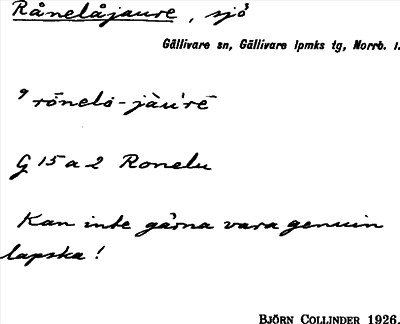 Rånelåjaure, sjö
Gällivare sn, Gällivare lpmks tg, Norrb. l.
rōnelo-jàu'rē
G 15 a 2 Ronelu
Kan inte gärna vara genuin
lapska!
BJÖRN COLLINDER 1926.